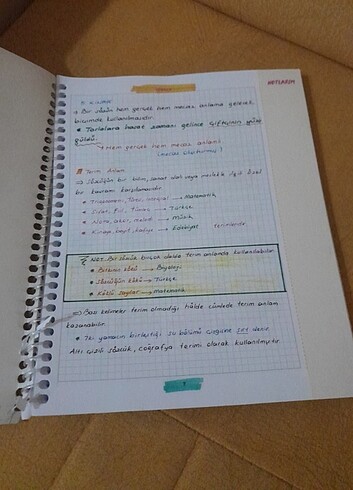 NOTLARIM
→ Bir sözün hem gerçek hem mecaz anlama gelecek
biçimde kullanılmasıdır.
• Tarlalara hasat zamanı gelince çiftçinin yüzü
güldü.
→ Hem gerçek hem mecaz anlamlı
Terim Anlam
⇒ Sözcüğün bir bilim, sanat dalı veya meslekle ilgili özel
bir kavramı karşılamasıdır.
türev, integral → Matematik
fiil, → Türkçe
Nota, → Müzik
Kitap, → Edebiyat terimleridir.
NOT: Bir sözcük birçok dalda terim anlamda kullanılabilir.
• Bitkinin kökü → Biyoloji
• Sözcüğün kökü → Türkçe
• Köklü Sayılar → Matematik
⇒ Bazı kelimeler terim olmadığı hâlde cümlede terim anlam
kazanabilir.
• İki yamacın birleştiği su bölümü çizgisine sırt denir.
Altı çizili sözcük, coğrafya terimi olarak kullanılmıştır.
1